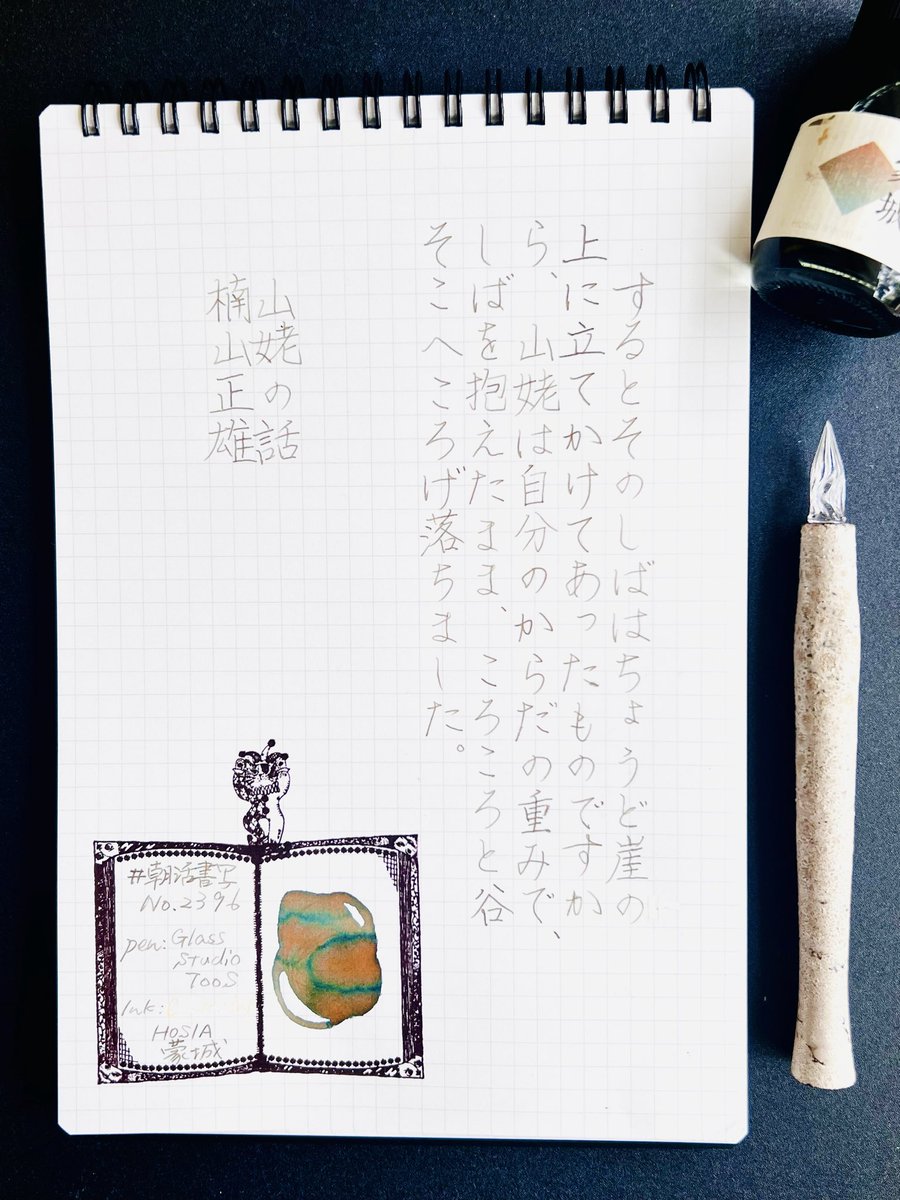 するとそのしばはちょうど崖の
上に立てかけてあったものですか
ら、山姥は自分のからだの重みで、
しばを抱えたまま、ころころと谷
そこへころげ落ちました。
山姥の話
楠山正雄
#朝活書写
No.2396
pen: Glass
studio
TooS
Ink:
HOSIA
蒙城
城